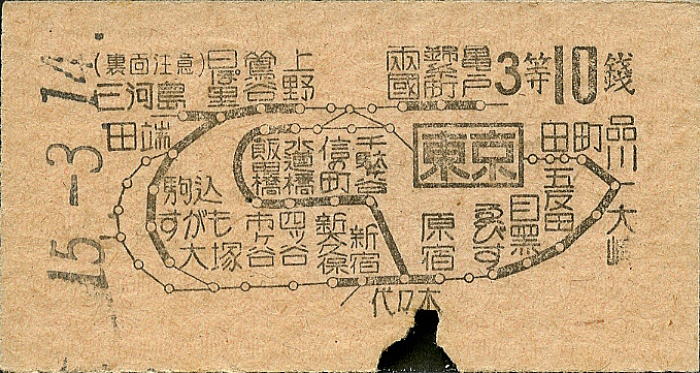 15.-3.14.
(裏面注意)
三河島
日ぽ里
鶯谷
上野
兩國
錦糸町
亀戸
3等10錢
田端
飯田橋
水道橋
信の町
千駄谷
東京
田町
品川
大崎
五反田
目黒
ゑびす
原宿
代々木
新宿
新大久保
四ッ谷
市ヶ谷
駒込
すがも
大塚